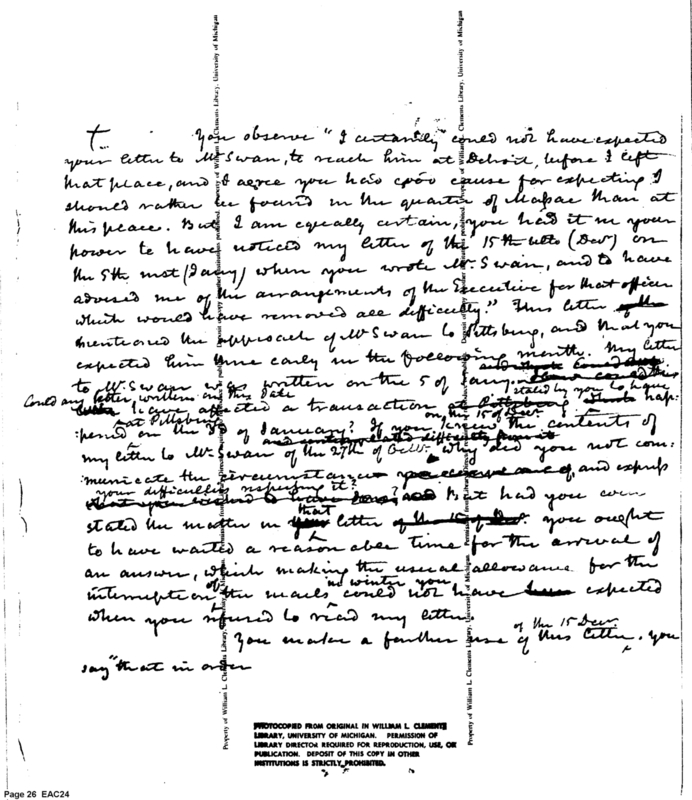 You observe "I certainly could not have expected
your letter to Mr Swan, to reach him at Detroit, before I left
that place, and I agree you had good cause for expecting I
should rather be found in the quarter of Massac than at
this place. But I am equally certain, you had it in your
power to have noticed my letter of the 15th ulto (Decr) on
the 5th inst (Jany) when you wrote Mr. Swan, and to have
advised me of the arrangements of the Executive for that officer
which would have removed all difficulty." This letter of the
mentioned the approach of Mr Swan to Pittsburg, and that you
expected him there early in the following month. My letter
to Mr. Swan was written on the 5 of Jany.
Could any letter written on this date
have affected a transaction at Pittsburg stated by you to have hap:
at Pittsburg on the 15 of Decr.
:pened on the 3d of January? If you knew the contents of
my letter to Mr Swan of the 27th of Octr. why did you not com:
municate the circumstances and express
your difficulties respecting it? But had you even
stated the matter in that letter of the 15 of Decr. you ought
to have waited a reasonable time for the arrival of
an answer, which making the usual allowance for the
interruption of the mails in winter you could not have expected
when you refused to read my letter.
You make a farther use of this letter of the 15 Decr. You
say "that in over
Property of William L. Clements Library, University of Michigan
Property of William L. Clements Library, University of Michigan
PHOTOCOPIED FROM ORIGINAL IN WILLIAM L. CLEMENTS
LIBRARY, UNIVERSITY OF MICHIGAN. PERMISSION OF
LIBRARY DIRECTOR REQUIRED FOR REPRODUCTION, USE, OR
PUBLICATION. DEPOSIT OF THIS COPY IN OTHER
INSTITUTIONS IS STRICTLY PROHIBITED.
Page 26 EAC24